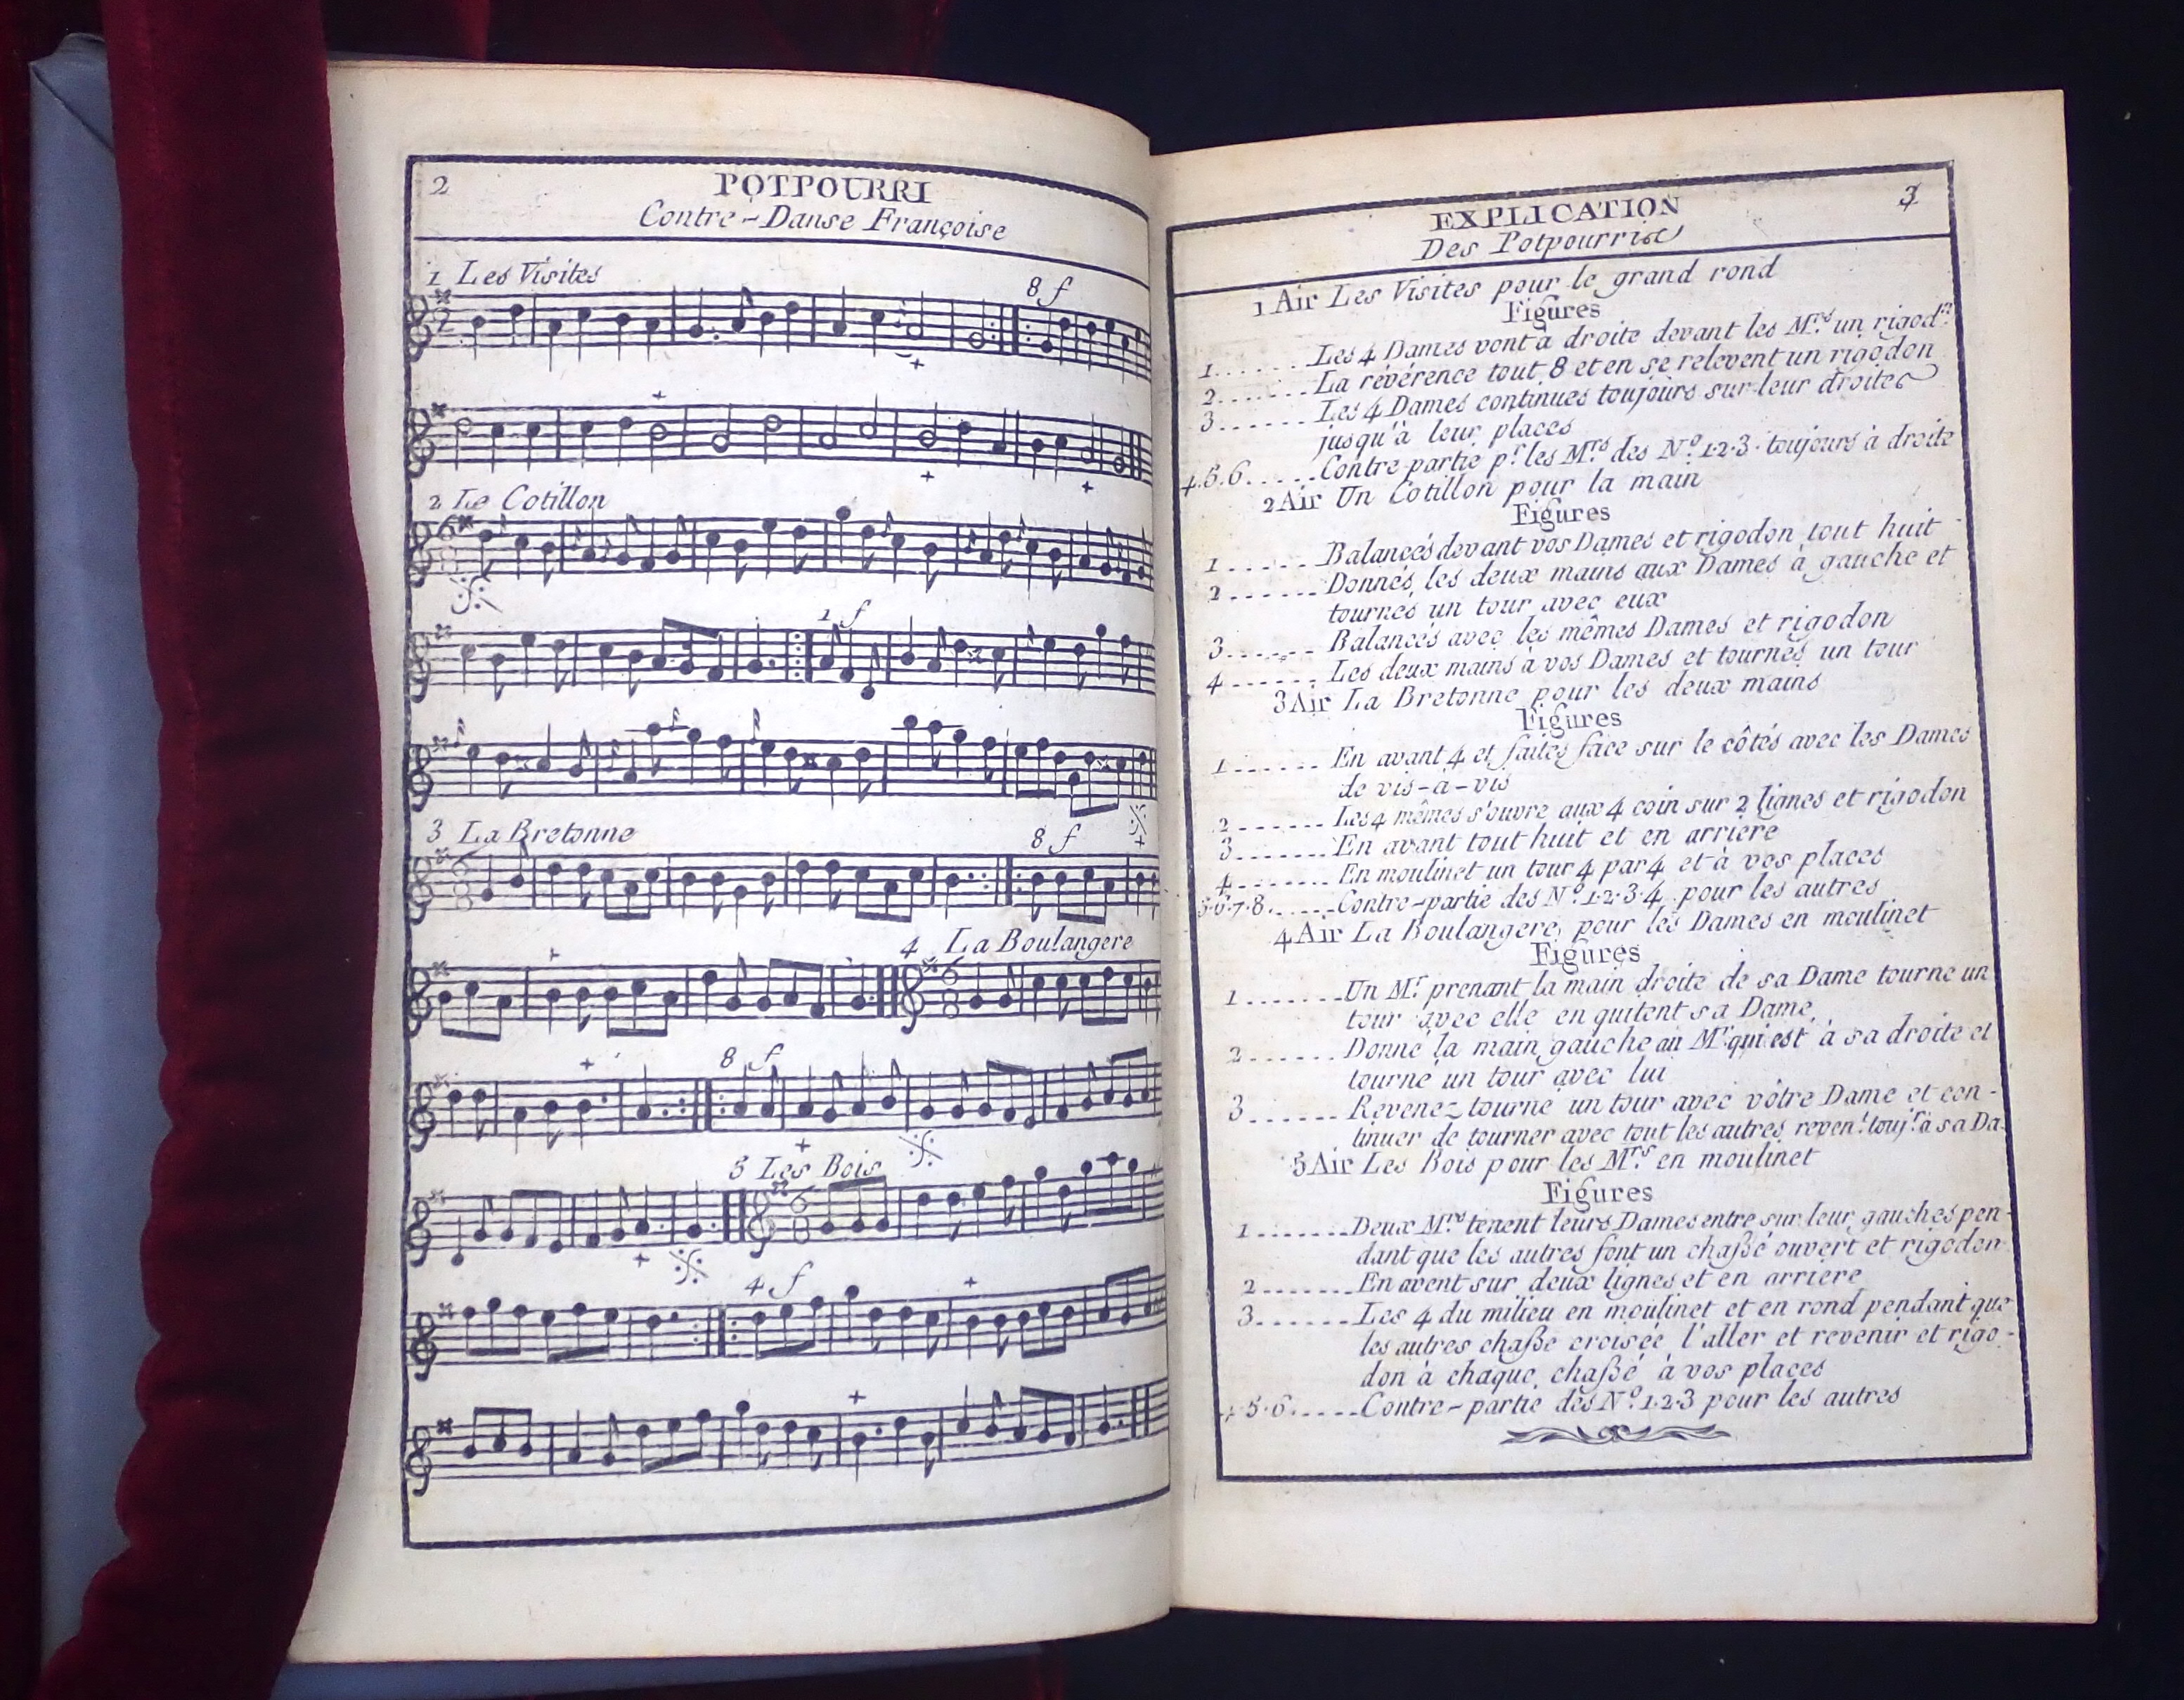 2
POTPOURRI
Contre-Danse Françoise
1 Les Visites
2
8 f
2 Le Cotillon
6
8
1 f
3 La Bretonne
6
8
8 f
4 La Boulangere
6
8
8 f
5 Les Bois
6
8
4 f
3
EXPLICATION
Des Potpourris
1 Air Les Visites pour le grand rond
Figures
1....... Les 4 Dames vont à droite devant les M.rs un rigod.n
2....... La révérence tout 8 et en se relevent un rigodon
3....... Les 4 Dames continues toujours sur leur droites
jusqu'à leur places
4.5.6..... Contre-partie p.r les M.rs des N.o 1.2.3. toujours à droite
2 Air Un Cotillon pour la main
Figures
1...... Balancés devant vos Dames et rigodon tout huit
2....... Donnés les deux mains aux Dames à gauche et
tournés un tour avec eux
3...... Balancés avec les mêmes Dames et rigodon
4....... Les deux mains à vos Dames et tournés un tour
3 Air La Bretonne pour les deux mains
Figures
1...... En avant 4 et faites face sur le côtés avec les Dames
de vis-à-vis
2....... Les 4 mêmes s'ouvre aux 4 coin sur 2 lignes et rigodon
3....... En avant tout huit et en arriere
4....... En moulinet un tour 4 par 4 et à vos places
5.6.7.8...... Contre-partie des N.o 1.2.3.4 pour les autres
4 Air La Boulangere, pour les Dames en moulinet
Figures
1....... Un M.r prenant la main droite de sa Dame tourne un
tour avec elle en quitent sa Dame,
2....... Donné la main gauche au M.r qui est à sa droite et
tourné un tour avec lui
3...... Revenez tourné un tour avec vôtre Dame et con-
tinuer de tourner avec tout les autres reven.t touj.rs à sa Da.
5 Air Les Bois pour les M.rs en moulinet
Figures
1....... Deux M.rs tenent leurs Dames entre sur leur gauches pen-
dant que les autres font un chaßé ouvert et rigodon
2....... En avent sur deux lignes et en arriere
3....... Les 4 du milieu en moulinet et en rond pendant que
les autres chaßé croisée l'aller et revenir et rigo-
don à chaque chaßé à vos places
4.5.6..... Contre-partie des N.o 1.2.3 pour les autres